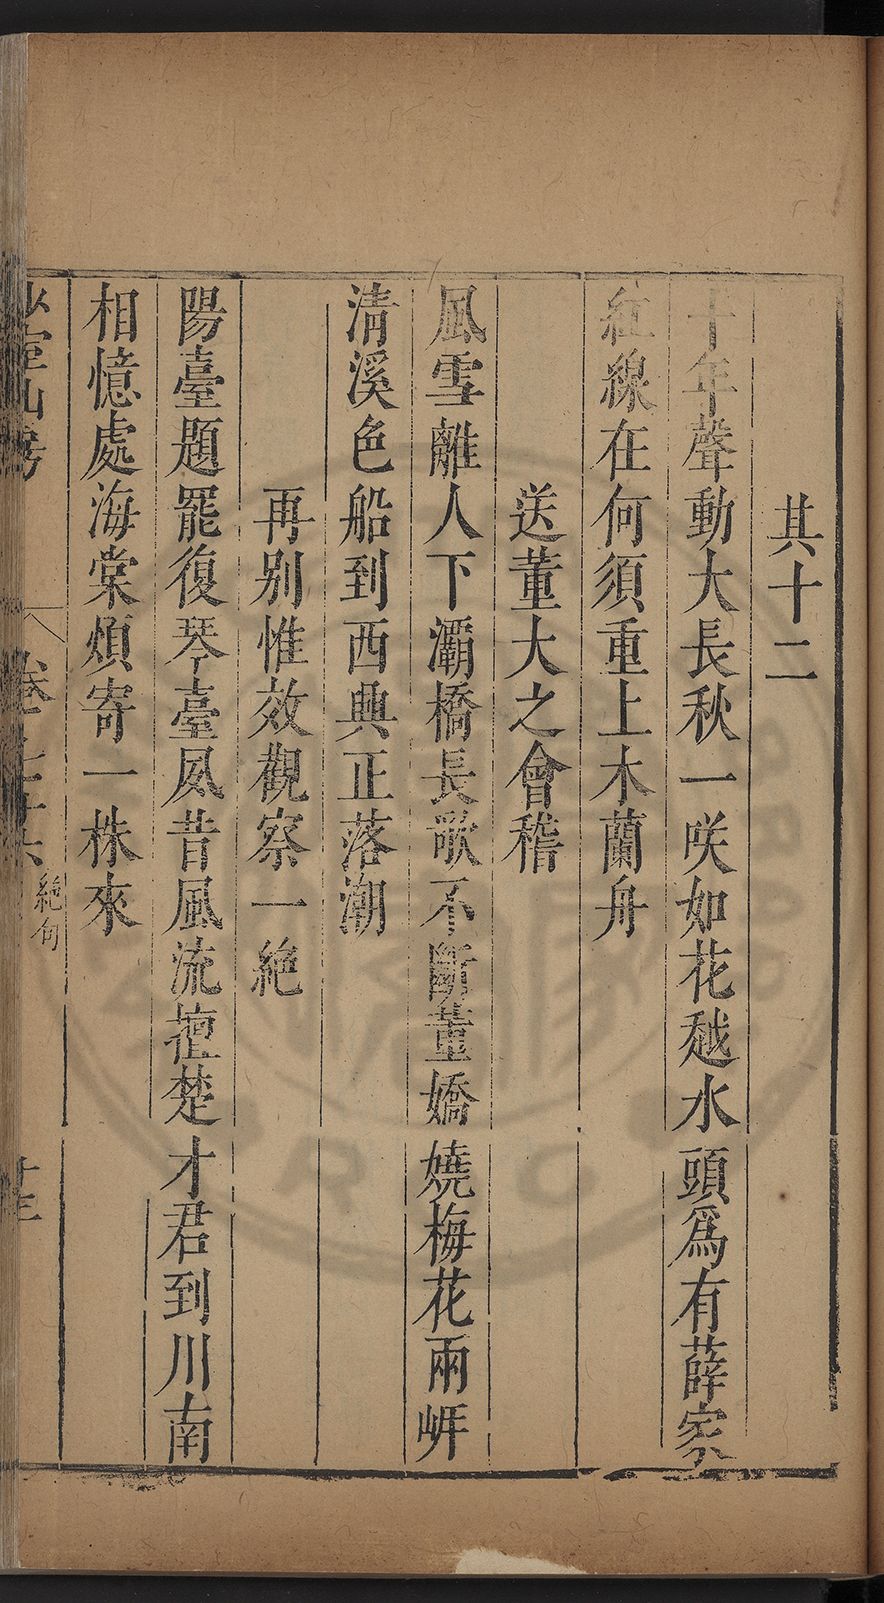 其十二
十年聲動大長秋一咲如花越水頭爲有薛家
紅線在何須重上木蘭舟
送董大之會稽
風雪離人下灞橋長歌不斷董嬌嬈梅花兩岸
清溪色船到西興正落潮
再別惟效觀察一絕
陽臺題罷復琴臺夙昔風流擅楚才君到川南
相憶處海棠煩寄一株來
山房
卷之七十六
絕句
十三